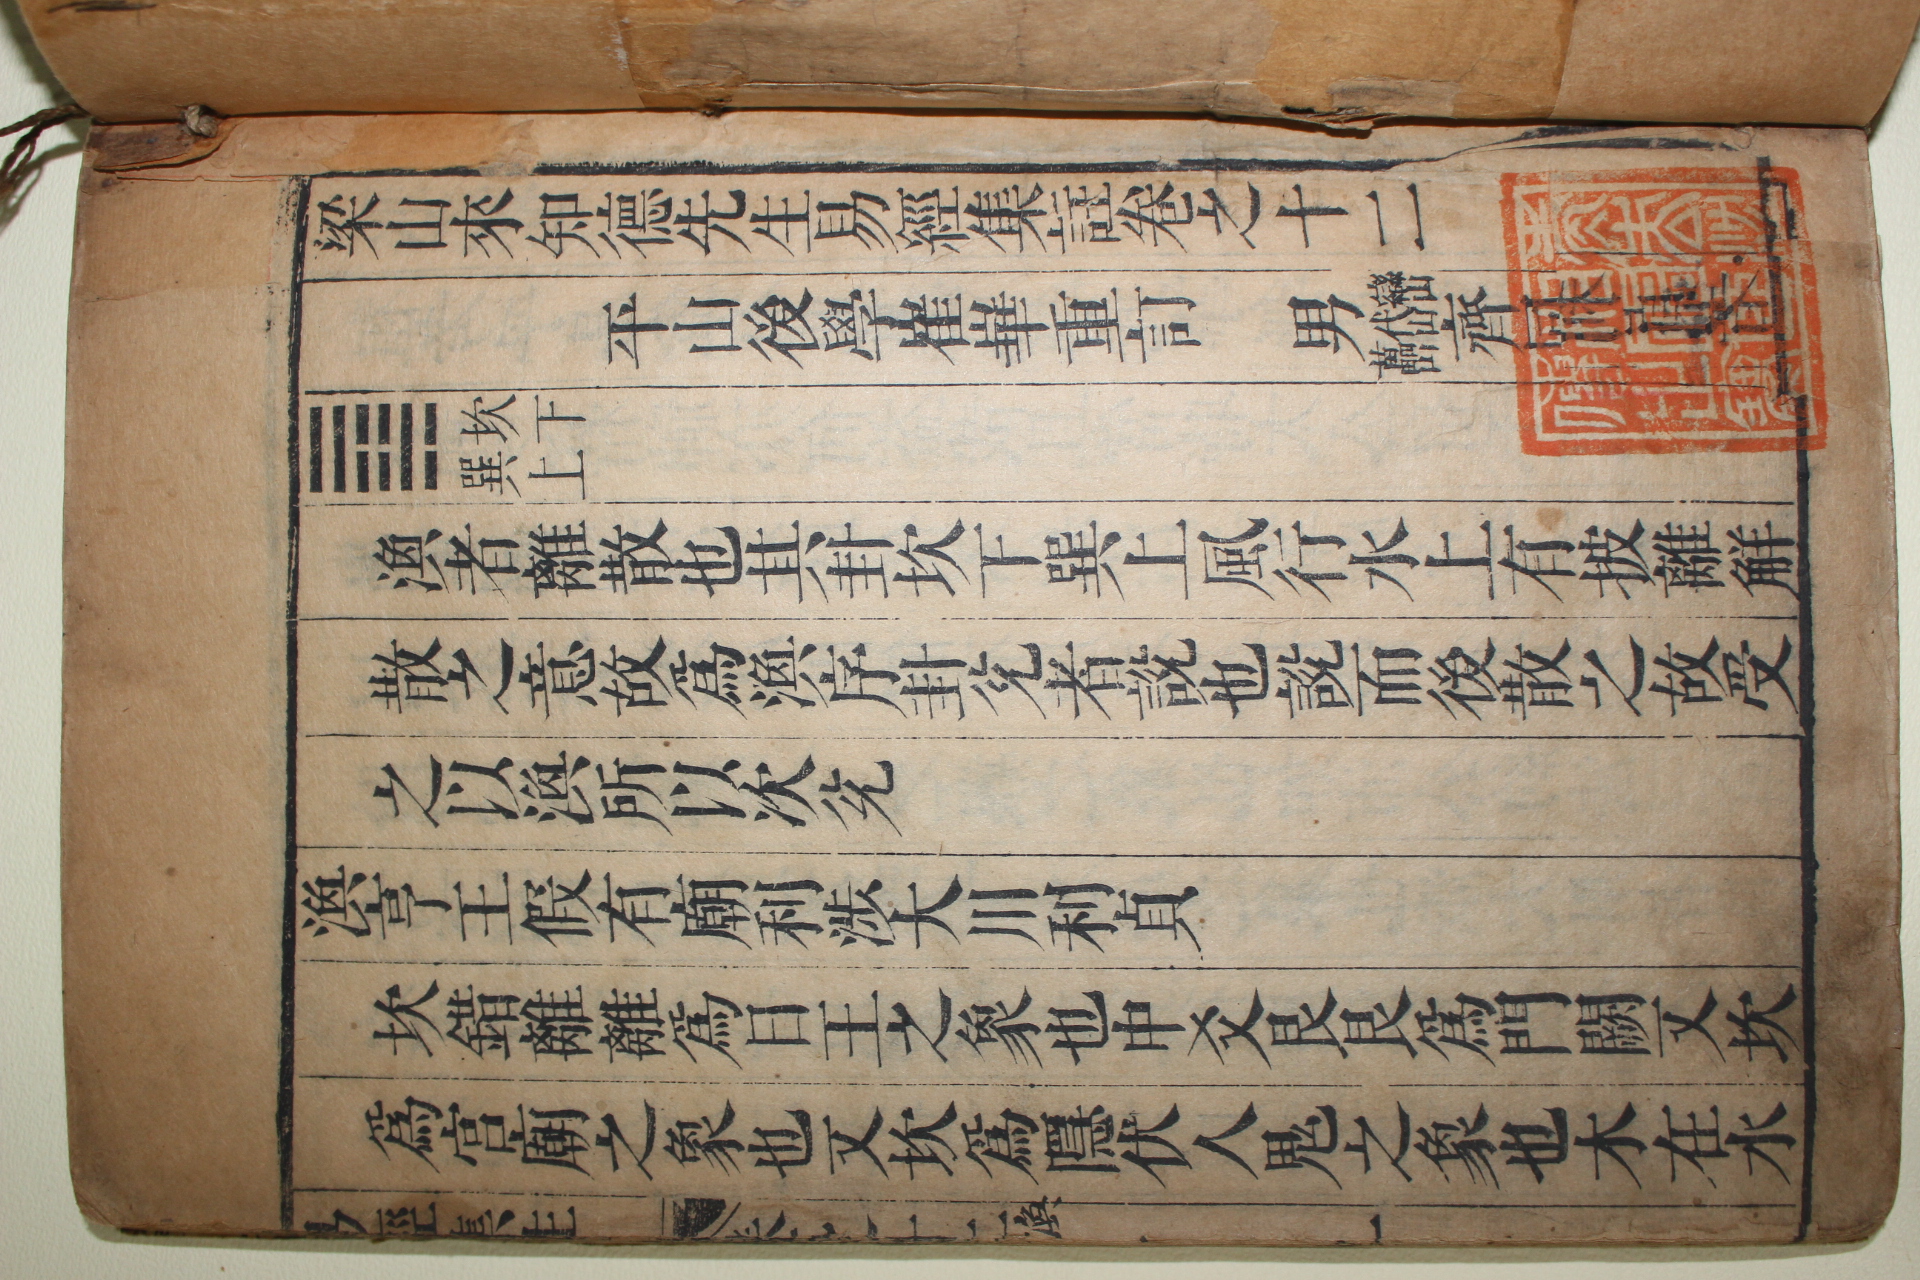 梁山來知德先生易經集註卷之十二
平山後學崔華重訂 男 齊
坎下巽上
渙者離散也其卦坎下巽上風行水上有披離解
散之意故爲渙序卦兌者說也說而後散之故受
之以渙所以次兌
渙亨王假有廟利涉大川利貞
坎錯離離爲日王之象也中爻艮艮爲門闕又坎
爲宮廟之象也又坎爲隱伏人鬼之象也木在水
易經集註 卷之十二 渙 一